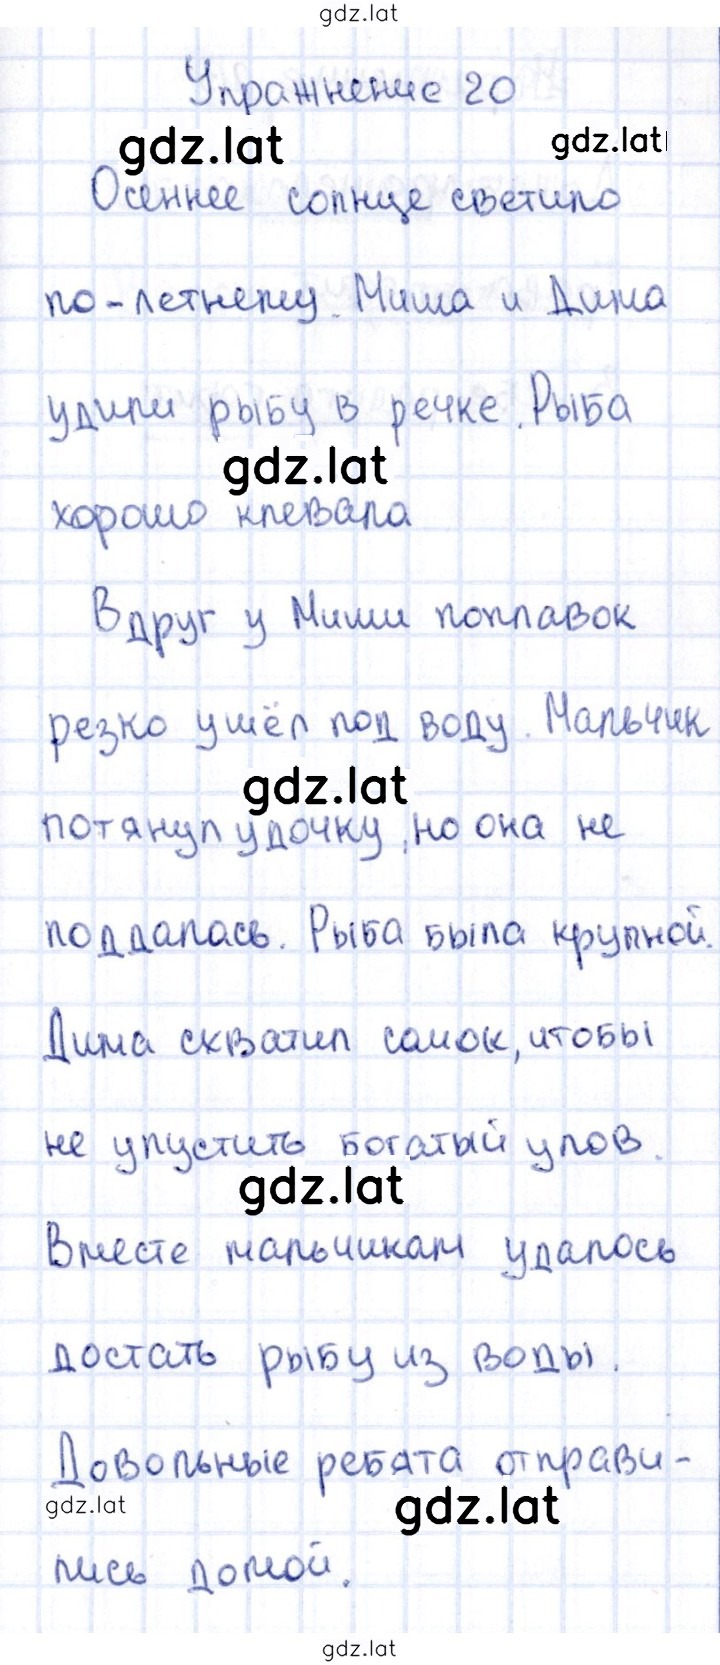 gdz.lat
Упражнение 20
gdz.lat gdz.lat
Осеннее солнце светило
по-летнему. Миша и Дима
удили рыбу в речке. Рыба
gdz.lat
хорошо клевала
Вдруг у Миши поплавок
резко ушёл под воду. Мальчик
gdz.lat
потянул удочку, но она не
поддалась. Рыба была крупной.
Дима схватил самок, чтобы
не упустить богатый улов.
gdz.lat
Вместе мальчикам удалось
достать рыбу из воды.
Довольные ребята отправи-
gdz.lat gdz.lat
лись домой.
gdz.lat